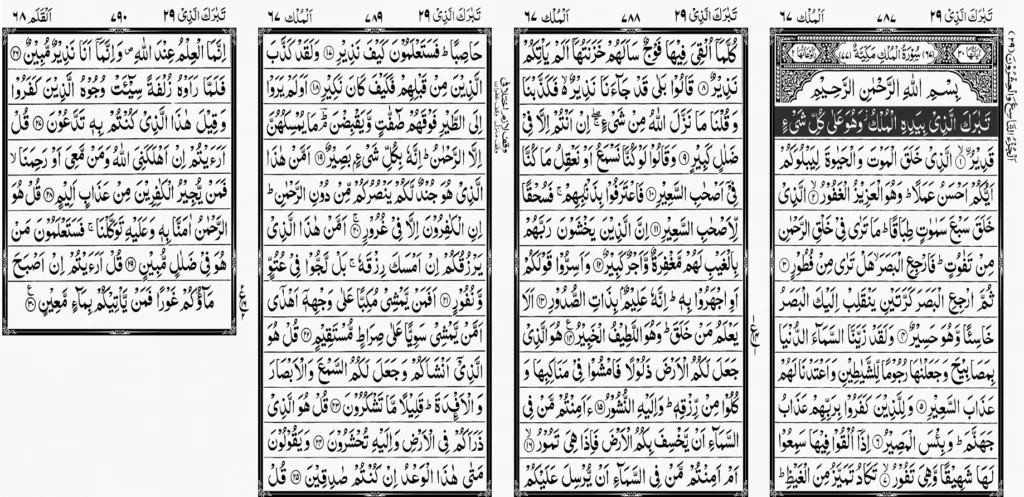 تَبٰرَكَ الَّذِیْ ٢٩ ٧٨٧ اَلْمُلْك ٦٧
سُوْرَةُ الْمُلْكِ مَكِّیَّةٌ (٧٧)
بِسْمِ اللّٰهِ الرَّحْمٰنِ الرَّحِیْمِ
تَبٰرَكَ الَّذِیْ بِیَدِهِ الْمُلْكُ ؗ وَهُوَ عَلٰی كُلِّ شَیْءٍ
قَدِیْرُ ۙ﴿١﴾ الَّذِیْ خَلَقَ الْمَوْتَ وَ الْحَیٰوةَ لِیَبْلُوَكُمْ
اَیُّكُمْ اَحْسَنُ عَمَلًا ؕ وَهُوَ الْعَزِیْزُ الْغَفُوْرُ ۙ﴿٢﴾ الَّذِیْ
خَلَقَ سَبْعَ سَمٰوٰتٍ طِبَاقًا ؕ مَا تَرٰی فِیْ خَلْقِ الرَّحْمٰنِ
مِنْ تَفٰوُتٍ ؕ فَارْجِعِ الْبَصَرَ ۙ هَلْ تَرٰی مِنْ فُطُوْرٍ ﴿٣﴾
ثُمَّ ارْجِعِ الْبَصَرَ كَرَّتَیْنِ یَنْقَلِبْ اِلَیْكَ الْبَصَرُ
خَاسِئًا وَّهُوَ حَسِیْرٌ ﴿٤﴾ وَ لَقَدْ زَیَّنَّا السَّمَآءَ الدُّنْیَا
بِمَصَابِیْحَ وَجَعَلْنٰهَا رُجُوْمًا لِّلشَّیٰطِیْنِ وَ اَعْتَدْنَا لَهُمْ
عَذَابَ السَّعِیْرِ ﴿٥﴾ وَ لِلَّذِیْنَ كَفَرُوْا بِرَبِّهِمْ عَذَابُ
جَهَنَّمَ ؕ وَ بِئْسَ الْمَصِیْرُ ﴿٦﴾ اِذَاۤ اُلْقُوْا فِیْهَا سَمِعُوْا
لَهَا شَهِیْقًا وَّهِیَ تَفُوْرُ ۙ﴿٧﴾ تَكَادُ تَمَیَّزُ مِنَ الْغَیْظِ ؕ
تَبٰرَكَ الَّذِیْ ٢٩ ٧٨٨ اَلْمُلْك ٦٧
كُلَّمَاۤ اُلْقِیَ فِیْهَا فَوْجٌ سَاَلَهُمْ خَزَنَتُهَاۤ اَلَمْ یَاْتِكُمْ
نَذِیْرٌ ﴿٨﴾ قَالُوْا بَلٰی قَدْ جَآءَنَا نَذِیْرٌ ۙ فَكَذَّبْنَا
وَ قُلْنَا مَا نَزَّلَ اللّٰهُ مِنْ شَیْءٍ ۖۚ اِنْ اَنْتُمْ اِلَّا فِیْ
ضَلٰلٍ كَبِیْرٍ ﴿٩﴾ وَ قَالُوْا لَوْ كُنَّا نَسْمَعُ اَوْ نَعْقِلُ مَا كُنَّا
فِیْۤ اَصْحٰبِ السَّعِیْرِ ﴿١٠﴾ فَاعْتَرَفُوْا بِذَنْۢبِهِمْ ۚ فَسُحْقًا
لِّاَصْحٰبِ السَّعِیْرِ ﴿١١﴾ اِنَّ الَّذِیْنَ یَخْشَوْنَ رَبَّهُمْ
بِالْغَیْبِ لَهُمْ مَّغْفِرَةٌ وَّ اَجْرٌ كَبِیْرٌ ﴿١٢﴾ وَ اَسِرُّوْا قَوْلَكُمْ
اَوِ اجْهَرُوْا بِهٖ ؕ اِنَّهٗ عَلِیْمٌۢ بِذَاتِ الصُّدُوْرِ ﴿١٣﴾ اَلَا
یَعْلَمُ مَنْ خَلَقَ ؕ وَهُوَ اللَّطِیْفُ الْخَبِیْرُ ﴿١٤﴾ هُوَ الَّذِیْ
جَعَلَ لَكُمُ الْاَرْضَ ذَلُوْلًا فَامْشُوْا فِیْ مَنَاكِبِهَا وَ
كُلُوْا مِنْ رِّزْقِهٖ ؕ وَ اِلَیْهِ النُّشُوْرُ ﴿١٥﴾ ءَاَمِنْتُمْ مَّنْ فِی
السَّمَآءِ اَنْ یَّخْسِفَ بِكُمُ الْاَرْضَ فَاِذَا هِیَ تَمُوْرُ ۙ﴿١٦﴾
اَمْ اَمِنْتُمْ مَّنْ فِی السَّمَآءِ اَنْ یُّرْسِلَ عَلَیْكُمْ
تَبٰرَكَ الَّذِیْ ٢٩ ٧٨٩ اَلْمُلْك ٦٧
حَاصِبًا ؕ فَسَتَعْلَمُوْنَ كَیْفَ نَذِیْرِ ﴿١٧﴾ وَ لَقَدْ كَذَّبَ
الَّذِیْنَ مِنْ قَبْلِهِمْ فَكَیْفَ كَانَ نَكِیْرِ ﴿١٨﴾ اَوَلَمْ یَرَوْا
اِلَی الطَّیْرِ فَوْقَهُمْ صٰٓفّٰتٍ وَّ یَقْبِضْنَ ؔۘؕ مَا یُمْسِكُهُنَّ
اِلَّا الرَّحْمٰنُ ؕ اِنَّهٗ بِكُلِّ شَیْءٍۭ بَصِیْرٌ ﴿١٩﴾ اَمَّنْ هٰذَا
الَّذِیْ هُوَ جُنْدٌ لَّكُمْ یَنْصُرُكُمْ مِّنْ دُوْنِ الرَّحْمٰنِ ؕ
اِنِ الْكٰفِرُوْنَ اِلَّا فِیْ غُرُوْرٍ ۚ﴿٢٠﴾ اَمَّنْ هٰذَا الَّذِیْ
یَرْزُقُكُمْ اِنْ اَمْسَكَ رِزْقَهٗ ۚ بَلْ لَّجُّوْا فِیْ عُتُوٍّ
وَّ نُفُوْرٍ ﴿٢١﴾ اَفَمَنْ یَّمْشِیْ مُكِبًّا عَلٰی وَجْهِهٖۤ اَهْدٰۤی
اَمَّنْ یَّمْشِیْ سَوِیًّا عَلٰی صِرَاطٍ مُّسْتَقِیْمٍ ﴿٢٢﴾ قُلْ هُوَ
الَّذِیْۤ اَنْشَاَكُمْ وَ جَعَلَ لَكُمُ السَّمْعَ وَ الْاَبْصَارَ
وَ الْاَفْـِٕدَةَ ؕ قَلِیْلًا مَّا تَشْكُرُوْنَ ﴿٢٣﴾ قُلْ هُوَ الَّذِیْ
ذَرَاَكُمْ فِی الْاَرْضِ وَ اِلَیْهِ تُحْشَرُوْنَ ﴿٢٤﴾ وَ یَقُوْلُوْنَ
مَتٰی هٰذَا الْوَعْدُ اِنْ كُنْتُمْ صٰدِقِیْنَ ﴿٢٥﴾ قُلْ
تَبٰرَكَ الَّذِیْ ٢٩ ٧٩٠ اَلْقَلَم ٦٨
اِنَّمَا الْعِلْمُ عِنْدَ اللّٰهِ ۪ وَ اِنَّمَاۤ اَنَا نَذِیْرٌ مُّبِیْنٌ ﴿٢٦﴾
فَلَمَّا رَاَوْهُ زُلْفَةً سِیْٓـَٔتْ وُجُوْهُ الَّذِیْنَ كَفَرُوْا
وَ قِیْلَ هٰذَا الَّذِیْ كُنْتُمْ بِهٖ تَدَّعُوْنَ ﴿٢٧﴾ قُلْ
اَرَءَیْتُمْ اِنْ اَهْلَكَنِیَ اللّٰهُ وَ مَنْ مَّعِیَ اَوْ رَحِمَنَا ۙ
فَمَنْ یُّجِیْرُ الْكٰفِرِیْنَ مِنْ عَذَابٍ اَلِیْمٍ ﴿٢٨﴾ قُلْ هُوَ
الرَّحْمٰنُ اٰمَنَّا بِهٖ وَعَلَیْهِ تَوَكَّلْنَا ۚ فَسَتَعْلَمُوْنَ مَنْ
هُوَ فِیْ ضَلٰلٍ مُّبِیْنٍ ﴿٢٩﴾ قُلْ اَرَءَیْتُمْ اِنْ اَصْبَحَ
مَآؤُكُمْ غَوْرًا فَمَنْ یَّاْتِیْكُمْ بِمَآءٍ مَّعِیْنٍ ﴿٣٠﴾